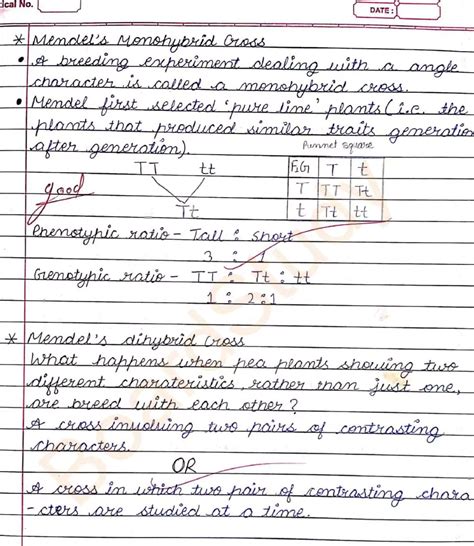 ical No.
DATE :
* Mendel's Monohybrid Cross
• A breeding experiment dealing with a angle
character is called a monohybrid cross.
• Mendel first selected 'pure line' plants (i.e. the
plants that produced similar traits generation
after generation).
Punnet Square
TT tt
F1G T t
T TT Tt
t Tt tt
good
Tt
Phenotypic ratio - Tall : Short
3 : 1
Genotypic ratio - TT : Tt : tt
1 : 2 : 1
* Mendel's dihybrid Cross
What happens when pea plants showing two
different charateristics, rather than just one,
are breed with each other?
A cross involving two pairs of contrasting
characters.
OR
A cross in which two pair of contrasting chara
-cters are studied at a time.